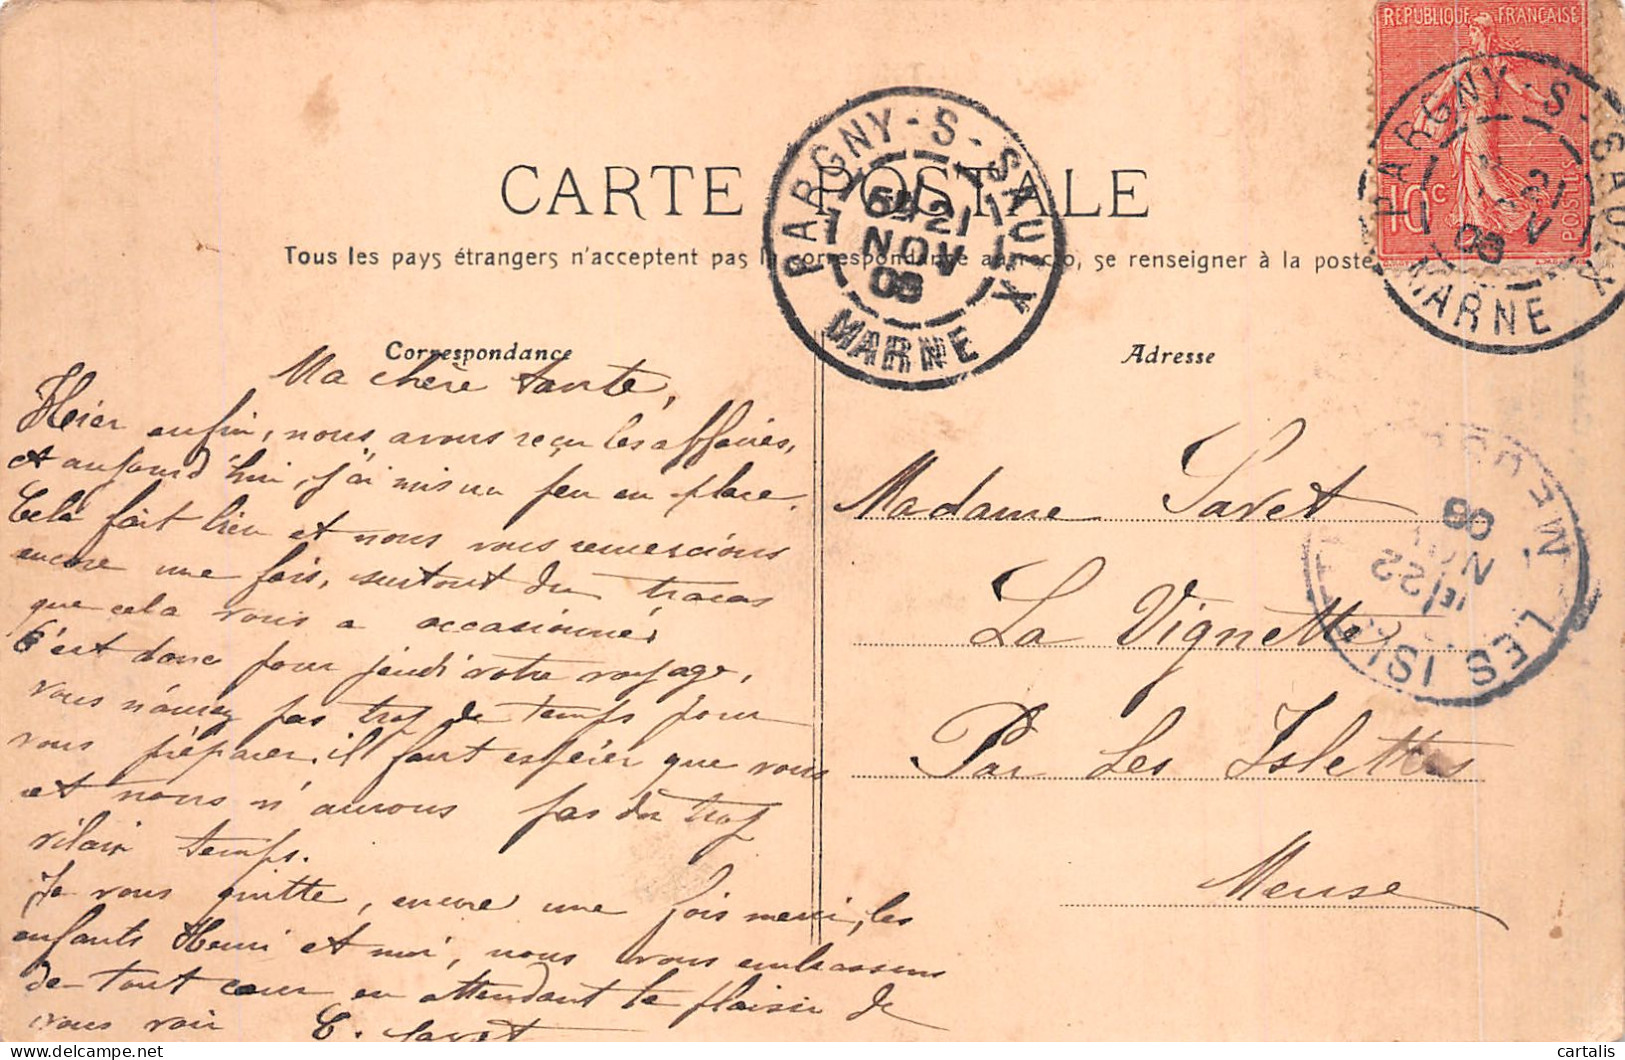 RÉPUBLIQUE FRANÇAISE
10c
POSTES
PARGNY-S-SAULX
21
MARNE
CARTE POSTALE
PARGNY-S-SAUX
6H 21
NOV
MARNE
Tous les pays étrangers n'acceptent pas la correspondance au recto, se renseigner à la poste
Correspondance
Adresse
Ma chère tante,
Hier enfin, nous avons reçu les affaires,
et aujourd'hui, j'ai mis un peu en place.
Celà fait bien et nous vous remercions
encore une fois, surtout du tracas
que cela vous a occasionné
C'est donc pour jeudi votre voyage,
vous n'aurez pas trop de temps pour
vous préparer, il faut espérer que vous
et nous n'aurons pas du trop
vilain temps.
Je vous quitte, encore une fois merci, les
enfants Henri et moi, nous vous embrassons
de tout cœur en attendant le plaisir de
vous voir
Madame Savet
La Vignette
Par Les Islettes
Meuse
LES ISL
22
NOV
cartalis